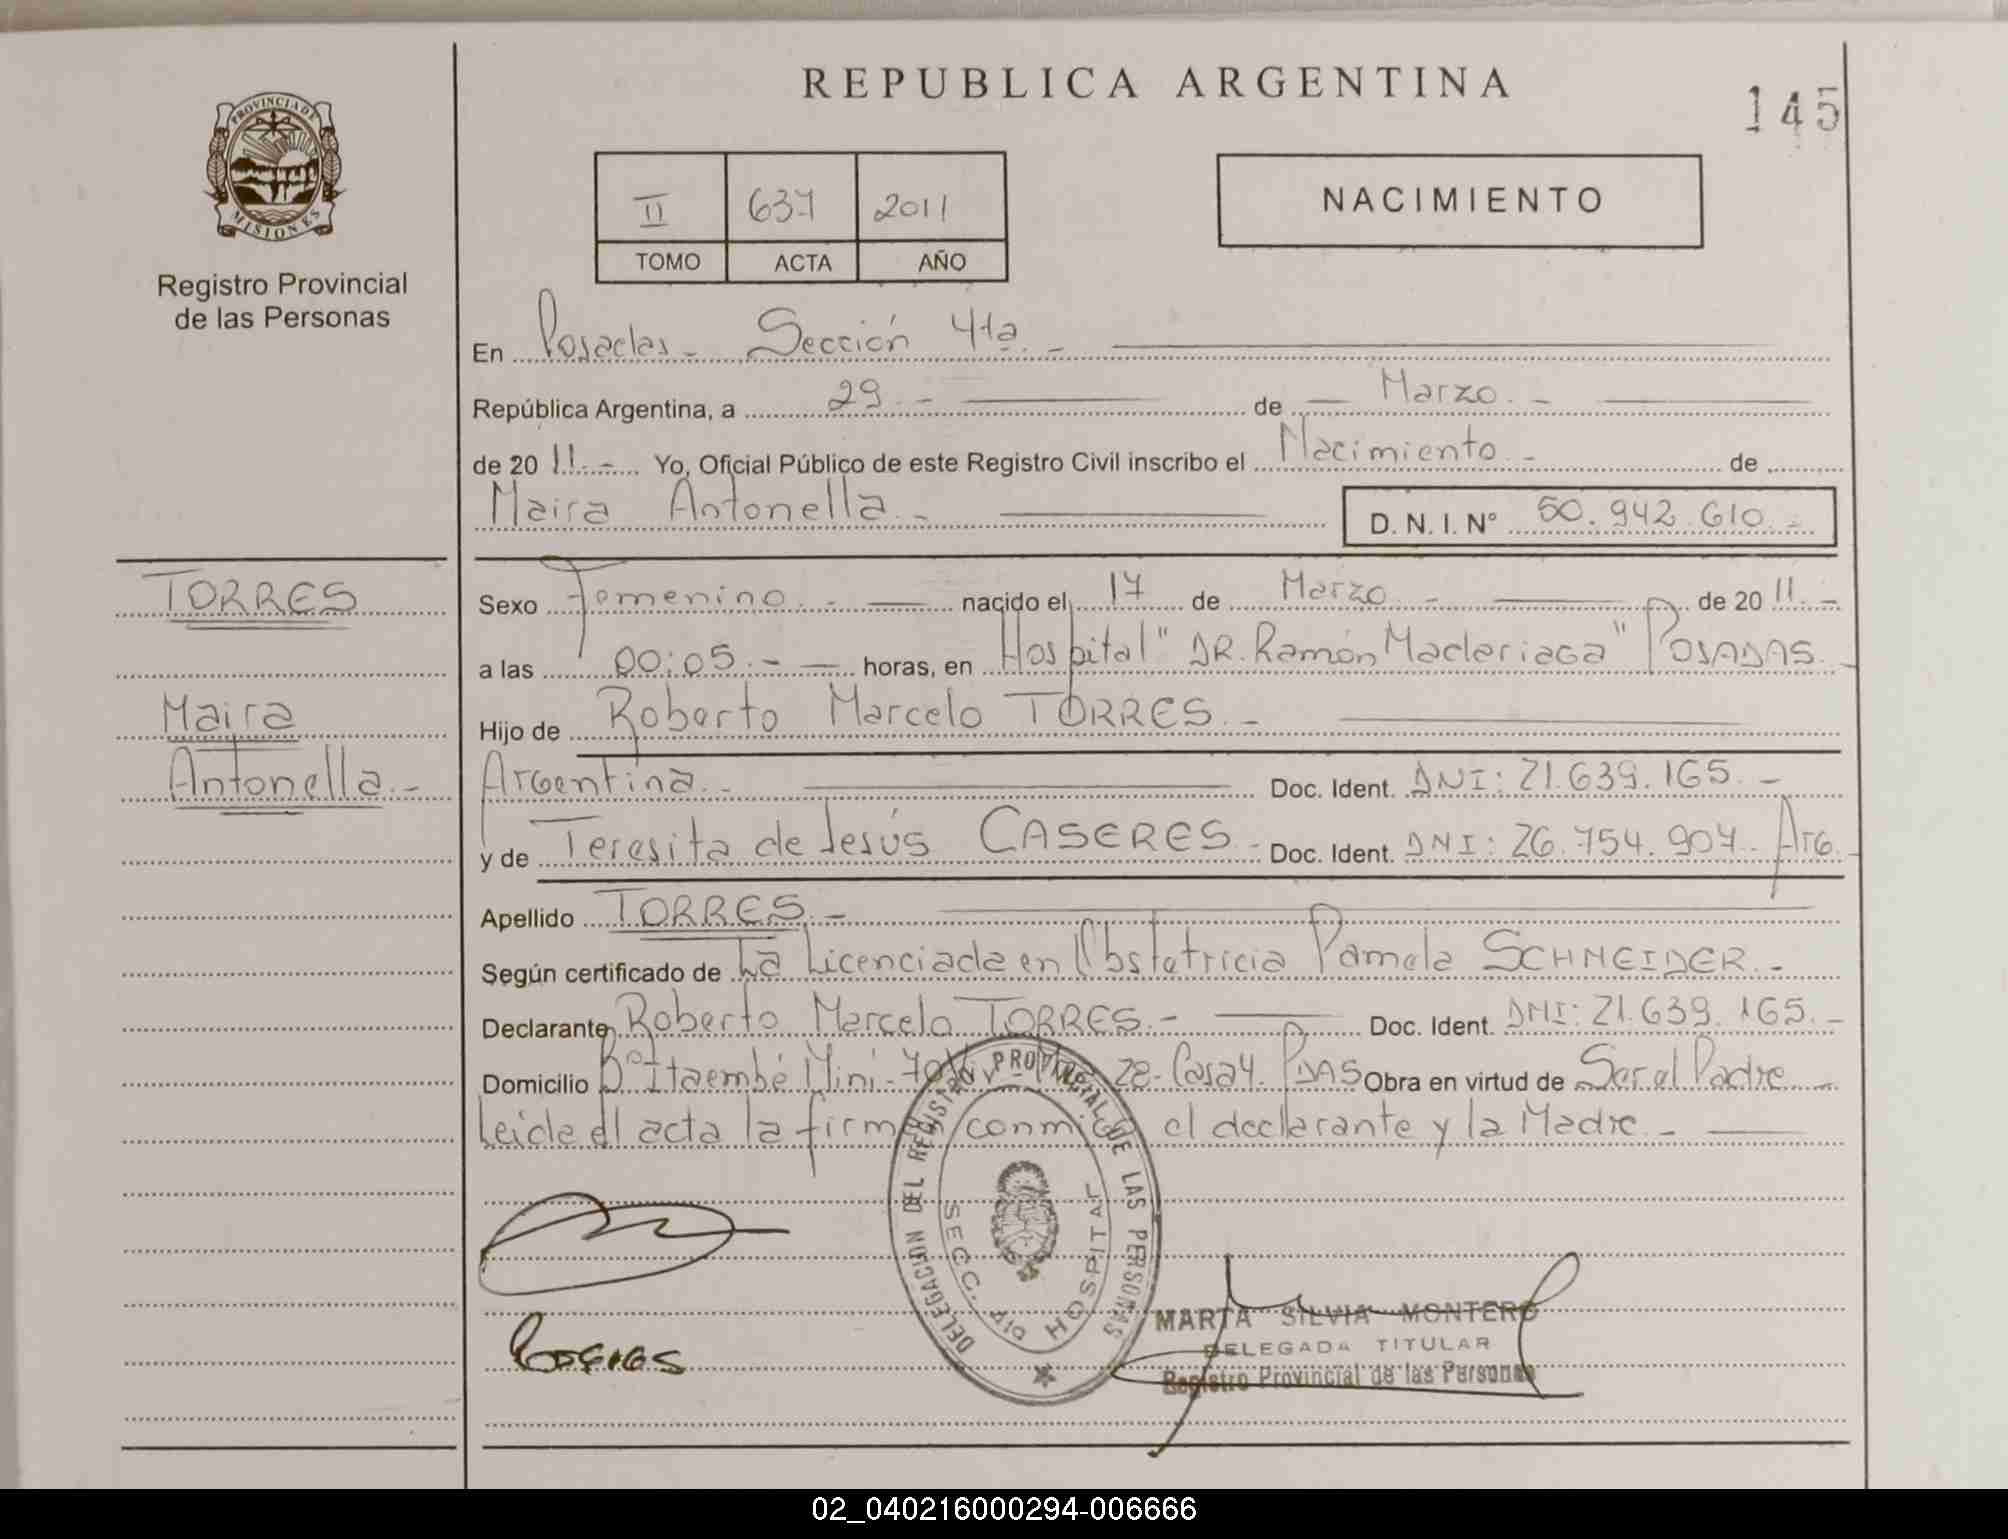 REPUBLICA ARGENTINA
145
PROVINCIA DE
MISIONES
Registro Provincial
de las Personas
II 637 2011
TOMO ACTA AÑO
NACIMIENTO
En Posadas - Sección 41a -
República Argentina, a 29 - de Marzo -
de 20 11.- Yo, Oficial Público de este Registro Civil inscribo el Nacimiento - de
Maira Antonella - D. N. I. N° 50.942.610.-
TORRES
Maira
Antonella.-
Sexo Femenino.- nacido el 17 de Marzo.- de 20 11.-
a las 00:05.- horas, en Hospital "DR. Ramón Madariaga" POSADAS.
Hijo de Roberto Marcelo TORRES.-
Argentina.- Doc. Ident. DNI: 21.639.165.-
y de Teresita de Jesús CASERES - Doc. Ident. DNI: 26.754.907- Arg.-
Apellido TORRES.-
Según certificado de La Licenciada en Obstetricia Pamela SCHNEIDER.-
Declarante Roberto Marcelo TORRES.- Doc. Ident. DNI: 21.639.165.-
Domicilio B° Itaembé Miní- 28- Casa 4. PDAS Obra en virtud de Ser el Padre
Leida el acta la firman conmigo el declarante y la Madre -
DELEGACION DEL REGISTRO PROVINCIAL DE LAS PERSONAS
SECC. 41a HOSPITAL
MARTA SILVIA MONTERO
DELEGADA TITULAR
Registro Provincial de las Personas
02_040216000294-006666